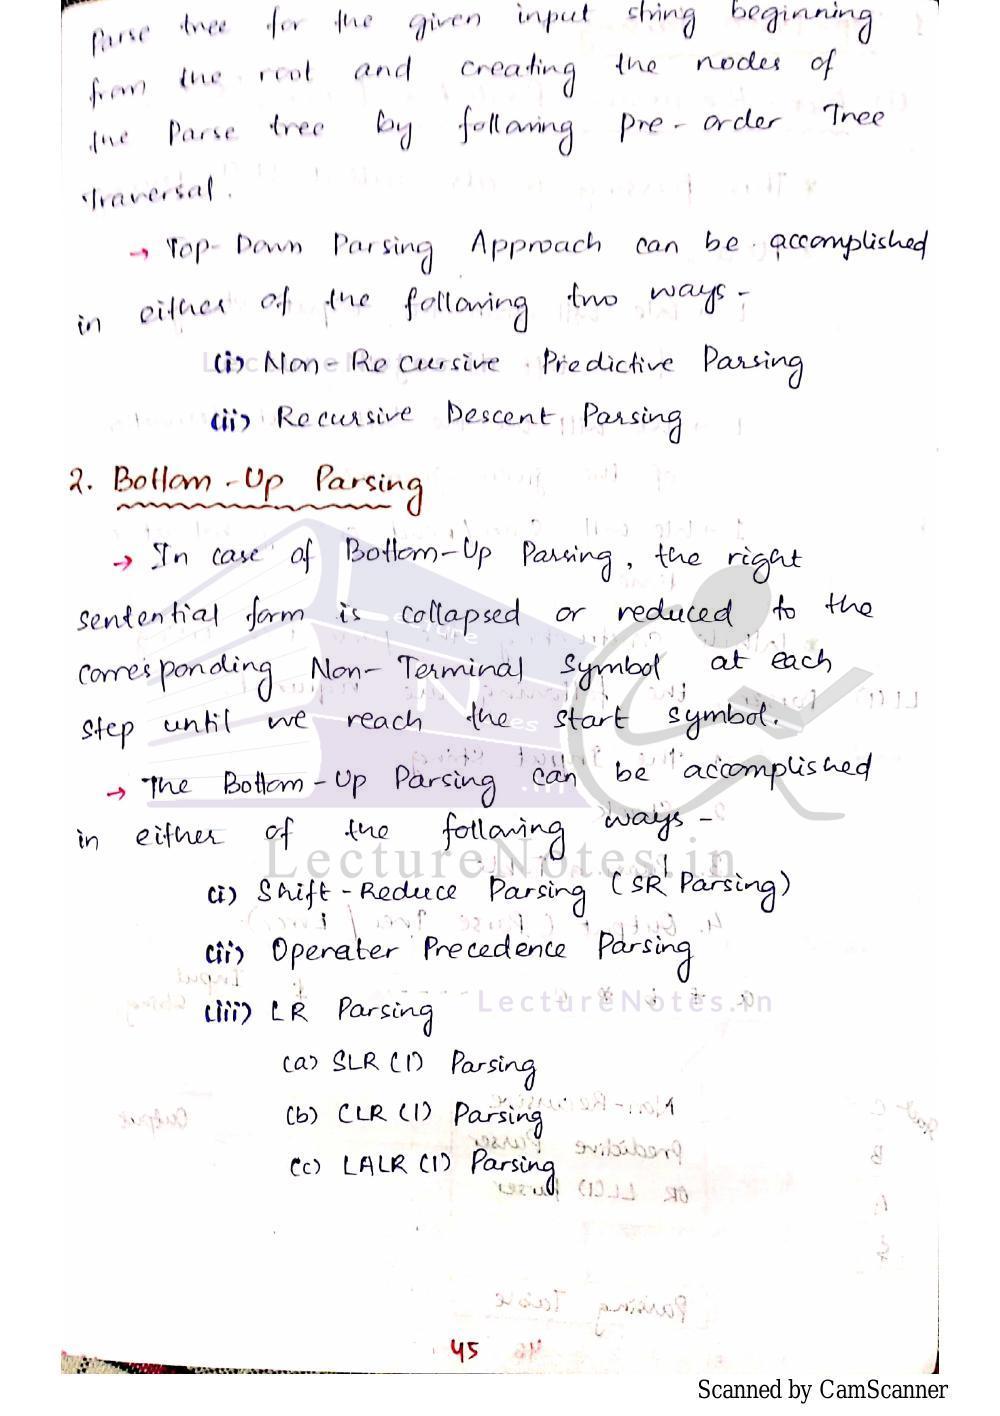 Parse tree for the given input string beginning
from the root and creating the nodes of
the Parse tree by following Pre-order Tree
traversal.
→ Top-Down Parsing Approach can be accomplished
in either of the following two ways-
(i) Non-Recursive Predictive Parsing
(ii) Recursive Descent Parsing
2. Bottom-Up Parsing
→ In case of Bottom-Up Parsing, the right
sentential form is collapsed or reduced to the
corresponding Non-Terminal Symbol at each
step until we reach the start symbol.
→ The Bottom-Up Parsing can be accomplished
in either of the following ways-
LectureNotes.in
(i) Shift-Reduce Parsing (SR Parsing)
(ii) Operater Precedence Parsing
LectureNotes.in
(iii) LR Parsing
(a) SLR (1) Parsing
(b) CLR (1) Parsing
(c) LALR (1) Parsing
45
Scanned by CamScanner